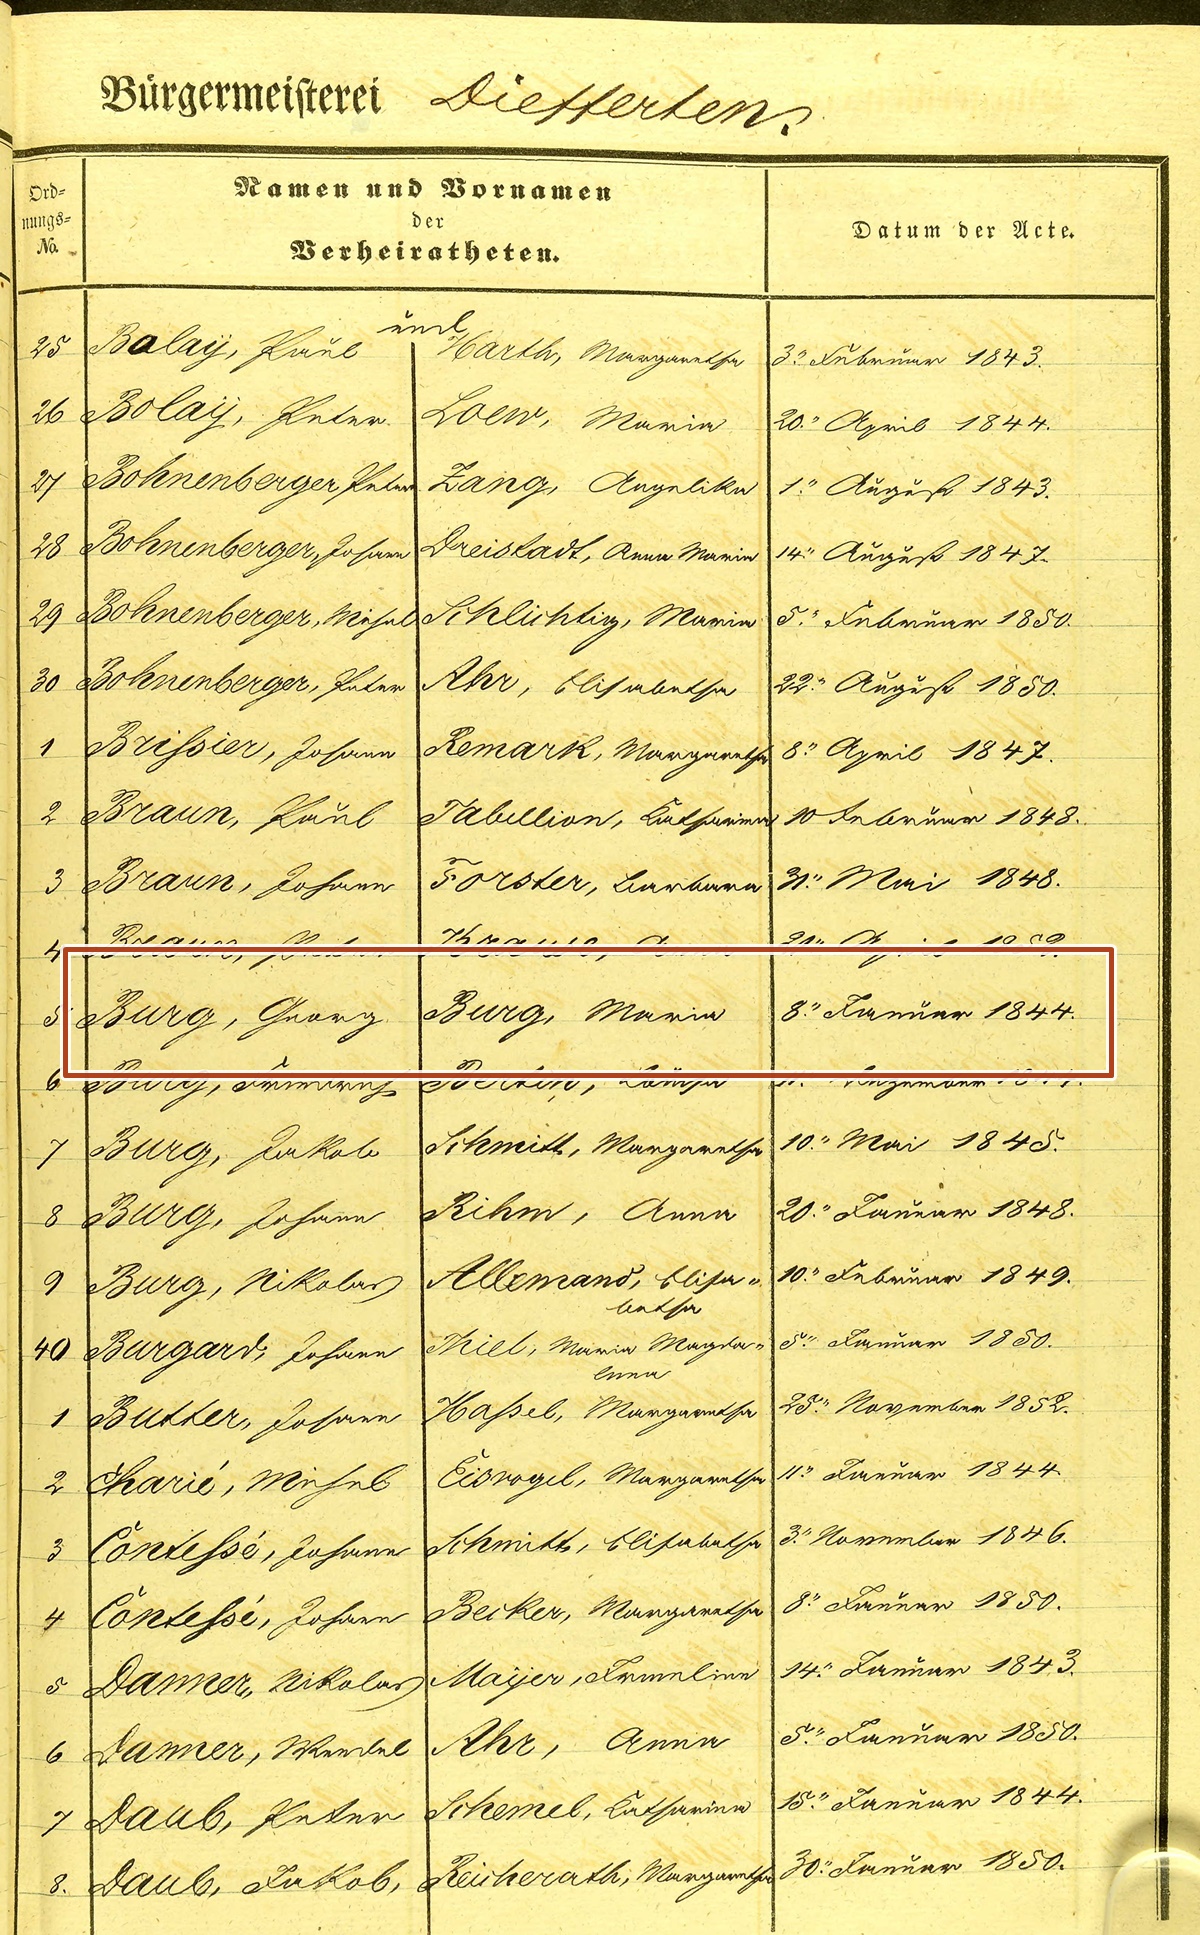 Bürgermeisterei Diefferten.
Ord-
nungs-
No.
Namen und Vornamen
der
Verheiratheten.
Datum der Acte.
25 Balay, Paul und Harth, Margaretha 3." Februar 1843.
26 Bolaÿ, Peter Loew, Maria 20." April 1844.
27 Bohnenberger, Peter Zang, Angelika 1." August 1843.
28 Bohnenberger, Johann Dreistadt, Anna Maria 14." August 1847.
29 Bohnenberger, Michel Schlichtig, Maria 5." Februar 1850.
30 Bohnenberger, Peter Ahr, Elisabetha 22." August 1850.
1 Brissier, Johann Remark, Margaretha 8." April 1847.
2 Braun, Paul Tabellion, Katharina 10 Februar 1848.
3 Braun, Johann Forster, Barbara 31." Mai 1848.
4
5 Burg, Georg Burg, Maria 8." Januar 1844.
6 Burg, Friedrich
7 Burg, Jakob Schmitt, Margaretha 10." Mai 1845.
8 Burg, Johann Rihm, Anna 20." Januar 1848.
9 Burg, Nikolas Allemand, Elisa- 10." Februar 1849.
betha
40 Burgard, Johann Thiel, Maria Magda- 5." Januar 1850.
lena
1 Butter, Johann Hassel, Margaretha 25." November 1852.
2 Charié, Michel Eisvogel, Margaretha 11." Januar 1844
3 Contessé, Johann Schmitt, Elisabetha 3." November 1846.
4 Contessé, Johann Becker, Margaretha 8." Januar 1850.
5 Danner, Nikolas Maÿer, 14." Januar 1843.
6 Danner, Wendel Ahr, Anna 5." Januar 1850.
7 Daub, Peter Schemel, Katharina 15." Januar 1844.
8. Daub, Jakob, Reicherath, Margaretha 30." Januar 1850.